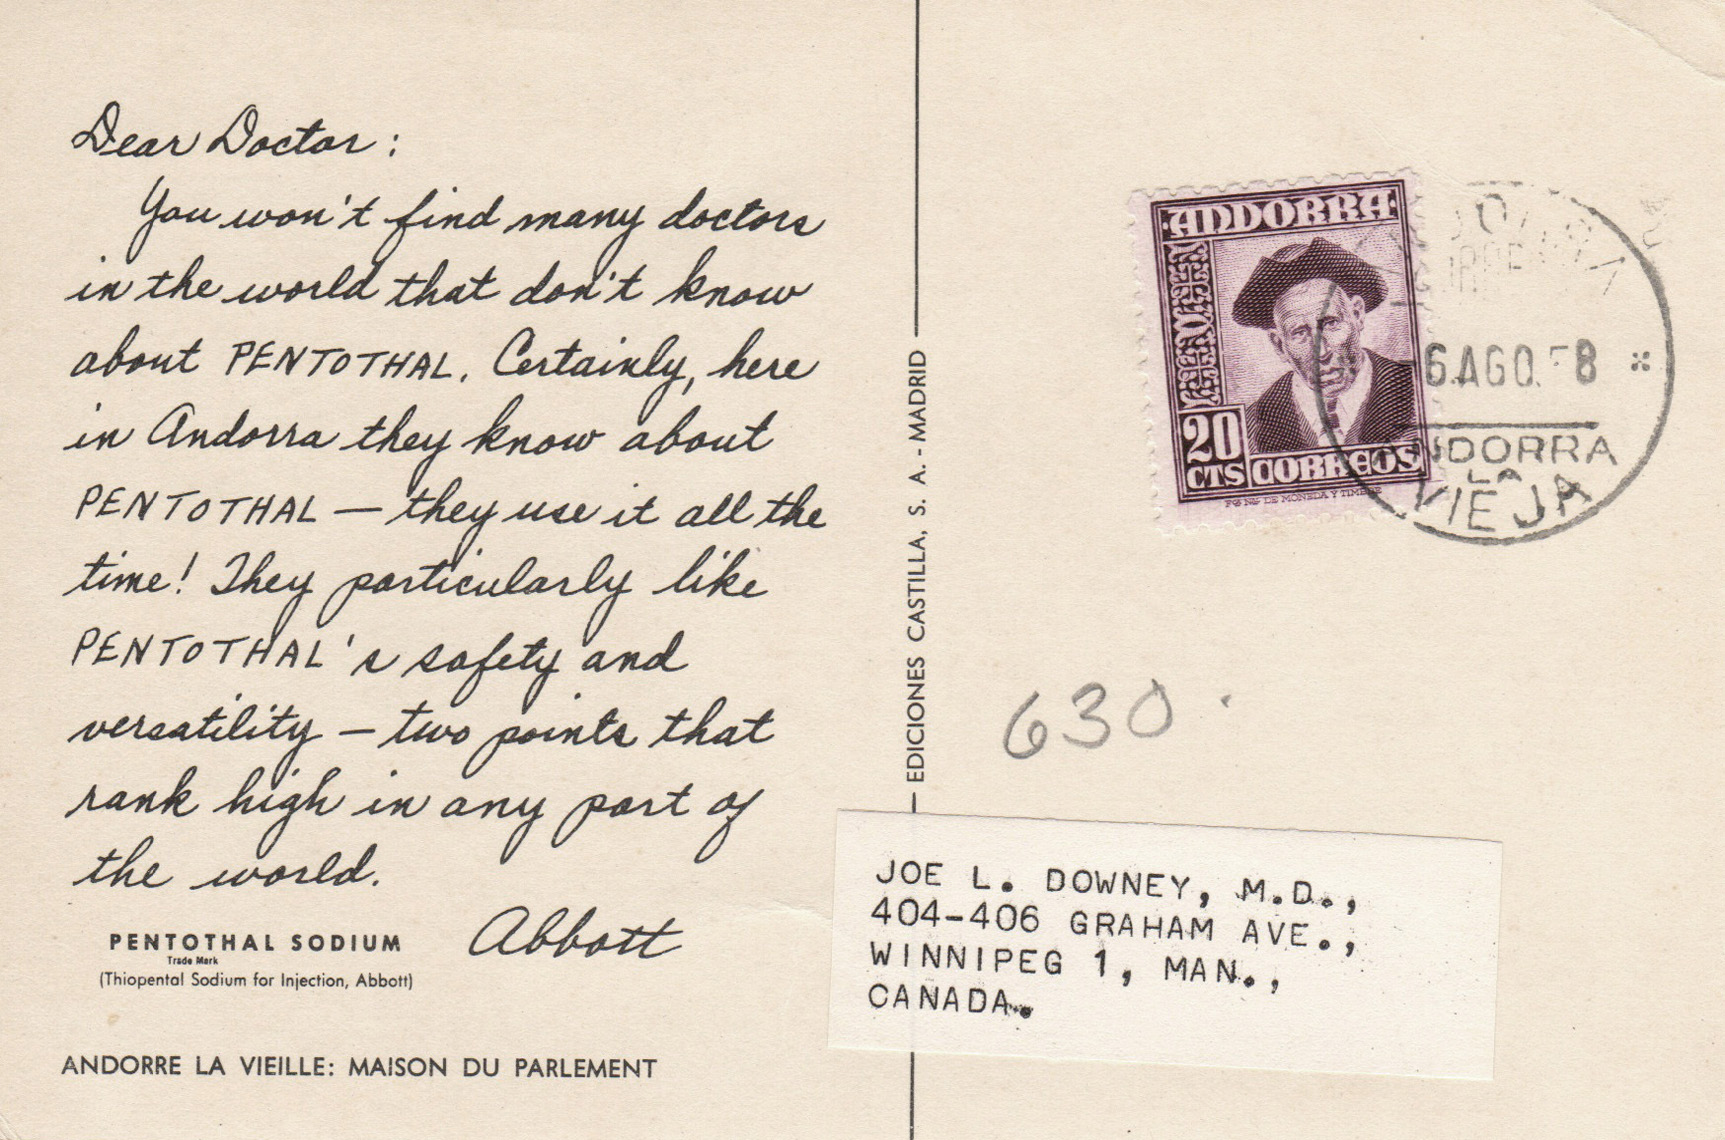 Dear Doctor:
You won't find many doctors
in the world that don't know
about PENTOTHAL. Certainly, here
in Andorra they know about
PENTOTHAL — they use it all the
time! They particularly like
PENTOTHAL's safety and
versatility — two points that
rank high in any part of
the world.
Abbott
PENTOTHAL SODIUM
Trade Mark
(Thiopental Sodium for Injection, Abbott)
ANDORRE LA VIEILLE: MAISON DU PARLEMENT
EDICIONES CASTILLA, S. A. - MADRID
·ANDORRA·
20
CTS CORREOS
DE MONEDA Y TIMBRE
6 AGO. 8
ANDORRA
LA
VIEJA
630.
JOE L. DOWNEY, M.D.,
404-406 GRAHAM AVE.,
WINNIPEG 1, MAN.,
CANADA.